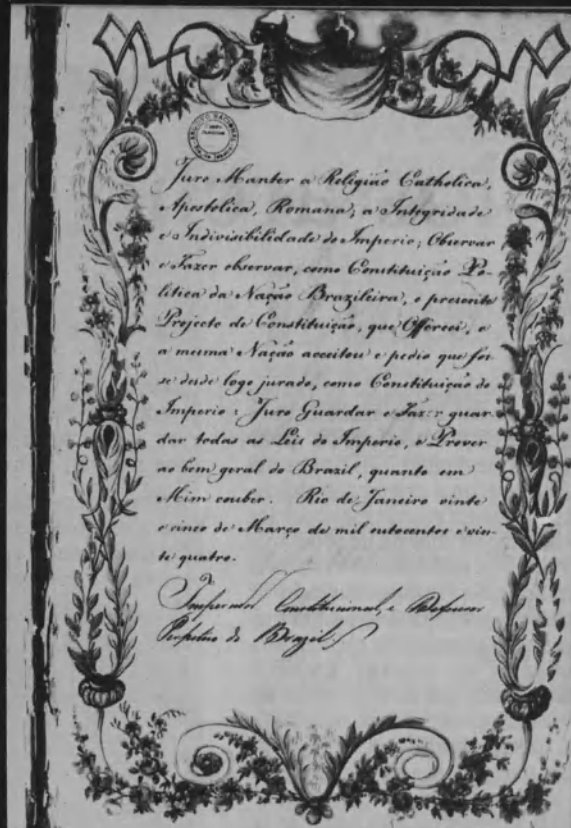 ARQUIVO NACIONAL
Juro Manter a Religião Catholica,
Apostolica, Romana; a Integridade
e Indivisibilidade do Imperio; Observar
e Fazer observar, como Constituição Po-
litica da Nação Brazileira, o presente
Projecto de Constituição, que Offereci, e
a mesma Nação acceitou e pedio que fos-
se desde logo jurado, como Constituição do
Imperio: Juro Guardar e Fazer guar-
dar todas as Leis do Imperio, e Prover
ao bem geral do Brazil, quanto em
Mim couber. Rio de Janeiro vinte
e cinco de Março de mil outocentos e vin-
te quatro.
Imperador Constitucional, e Defensor
Perpetuo do Brazil